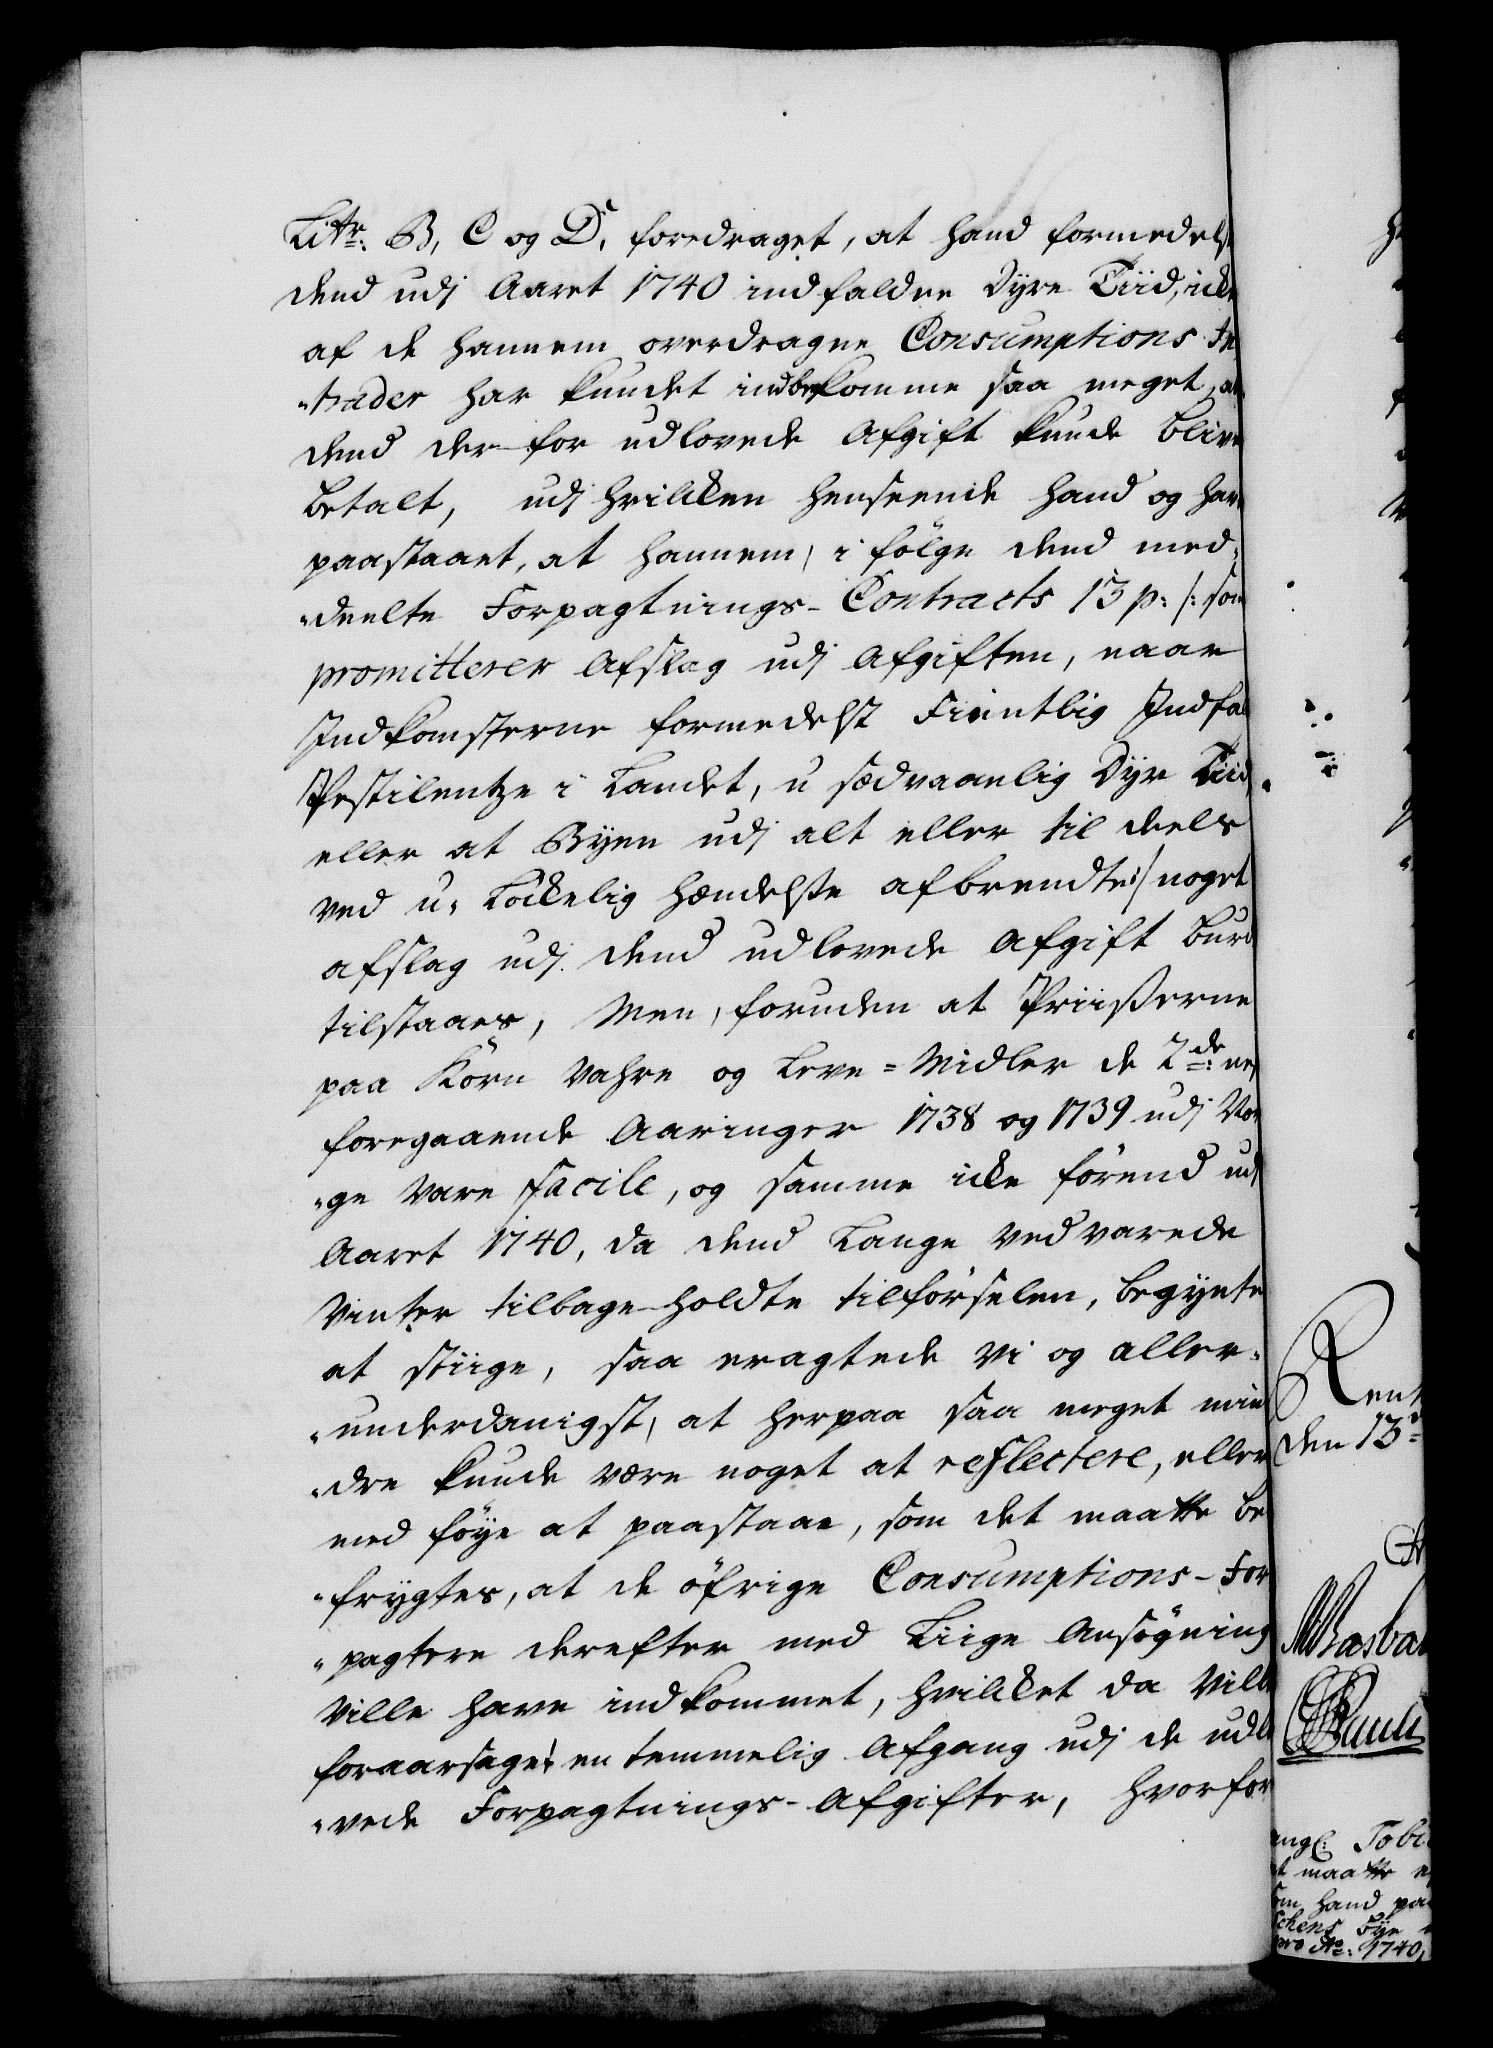 Litr: B, C og D, foredraget, at hand formedelst
dend udj Aaret 1740 indfaldne Dyre Tiid, icke
af de hannem overdragne Consumptions In
"trader har kundet indbekomme saa meget, at
dend der for udlovede Afgift kunde blive
betalt, udj hvilcken henseende hand og har
paastaaet, at hannem, i følge dend med-
"deelte Forpagtnings-Contracts 13 p: /: som
promitterer Afslag udj Afgiften, naar
Indkomsterne formedelst Fientlig Indfal
Pestilentze i Landet, u sædvaanlig Dyr Tiid
eller at Byen udj alt eller til deels
ved u-löckelig hændelsse afbrendte :/ noget
afslag udj dend udlovede Afgift burde
tilstaaes, Men, foruden at Priisserne
paa Korn Vahre og Leve=Midler de 2de: nest
foregaaende Aaringer 1738 og 1739 udj Nor
"ge vare facile, og samme icke förend udj
Aaret 1740, da dend Lange vedvarede
Vinter tilbage-holdte tilförselen, begynte
at stiige, saa eragtede vi og aller-
"underdanigst, at herpaa saa meget min
"dre kunde være noget at reflectere, eller
med föye at paastaae, som det maatte be
"frygtes, at de öfrige Consumptions-For
"pagtere derefter med Liige Ansögning
Ville have indkommet, hvilcket da Ville
foraarsaget en temmelig Afgang udj de udlo
"vede Forpagtnings-Afgifter, hvorfor
Rent
den 13
Tobi
maatte
hand paa
1740,